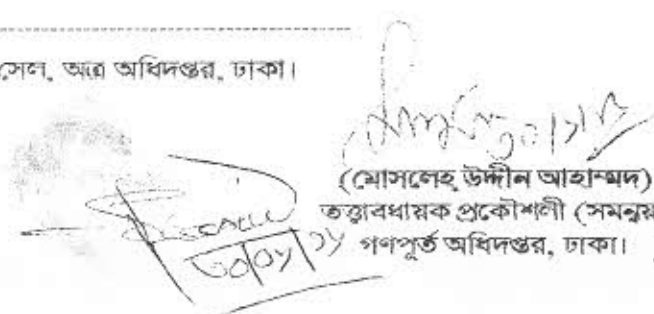 সেল, অত্র অধিদপ্তর, ঢাকা।
(মোসলেহ্ উদ্দীন আহাম্মদ)
তত্ত্বাবধায়ক প্রকৌশলী (সমন্বয়
গণপূর্ত অধিদপ্তর, ঢাকা।